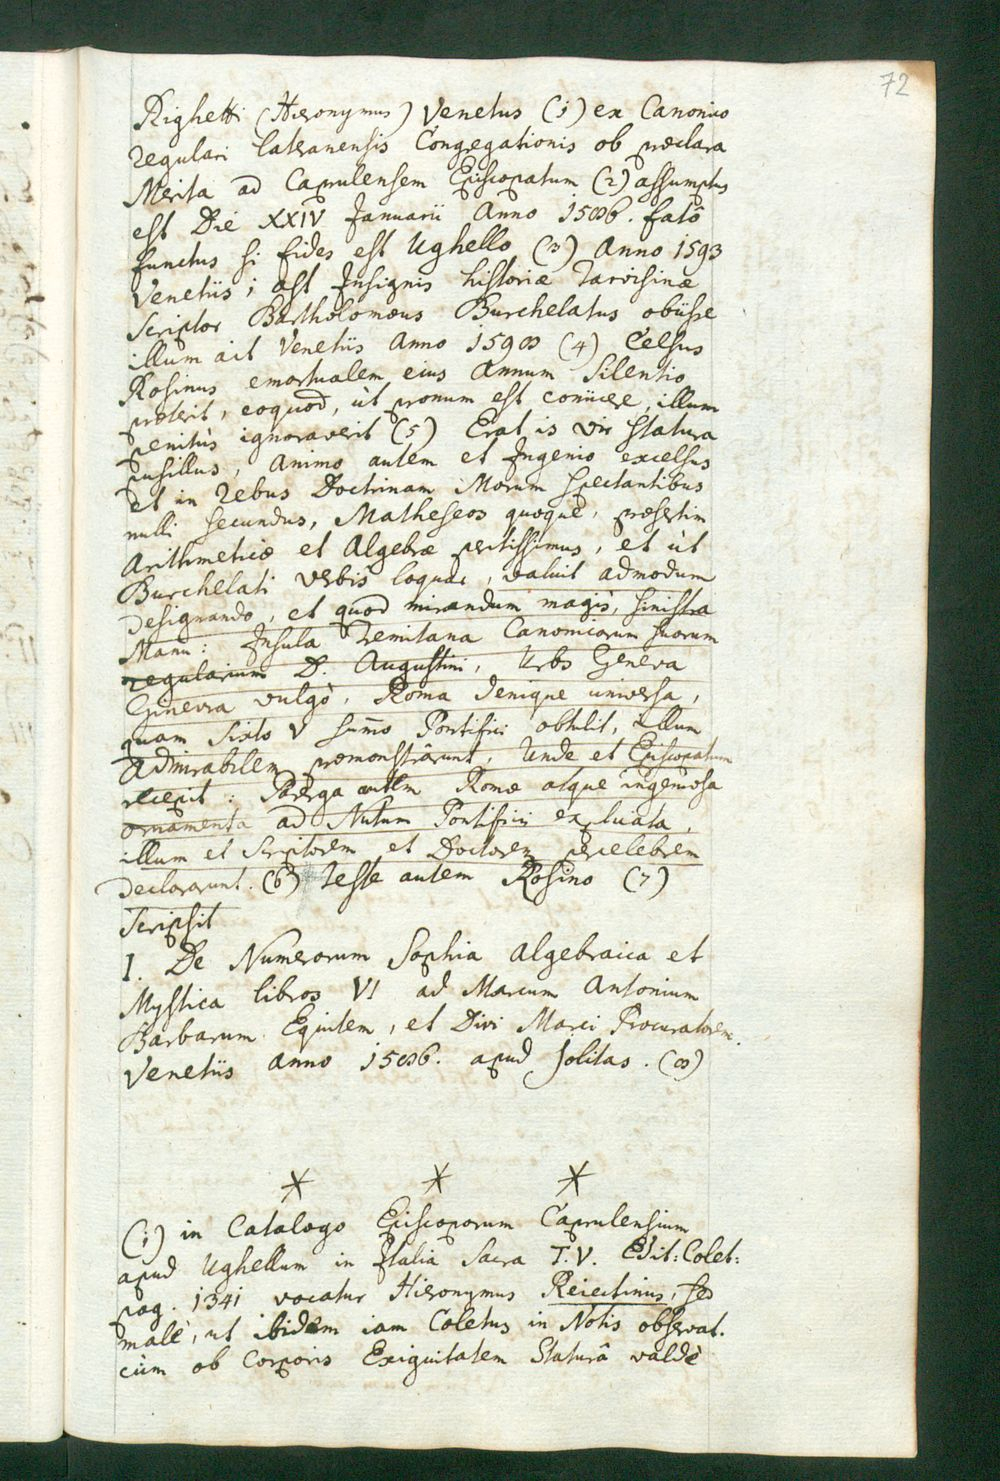 72
Righetti (Hieronymus) Venetus (1) ex Canonico
regulari Lateranensis Congregationis ob præclara
Merita ad Caprulensem Episcopatum (2) assumptus
est Die XXIV Januarii Anno 1586. fatô
functus si fides est Ughello (3) Anno 1593
Venetiis; ast Insignis historiæ Tarvisinæ
Scriptor Bartholomæus Burchelatus obiisse
illum ait Venetiis Anno 1598 (4) Celsus
Rosinus emortualem eius Annum Silentio
præterit, eoquod, ùt pronum est coniicere, illum
penitùs ignoraverit (5) Erat is vir statura
pusillus, Animo autem et Ingenio excelsus
et in rebus Doctrinam Morum spectantibus
nulli secundus, Matheseos quoque, præsertim
Arithmeticæ et Algebræ peritissimus, et ùt
Burchelati verbis loquar, valuit admodum
designando, et quod mirandum magis, sinistra
Manu: Insula Tremitana Canonicorum suorum
regularium D. Augustini, Urbs Geneva
Ginevra vulgò, Roma denique universa,
quam Sixto V summo Pontifici obtulit, illum
Admirabilem præmonstrârunt, Unde et Episcopatum
recepit: Parerga autem Romæ atque ingeniosa
ornamenta ad Nutum Pontificis exsculpta,
illum et Scriptorem et Doctorem percelebrem
declararunt. (6) Teste autem Rosino (7)
Scripsit
I. De Numerorum Sophia Algebraica et
Mystica libros VI ad Marcum Antonium
Barbarum Equitem, et Divi Marci Procuratorem.
Venetiis anno 1586. apud Jolitas. (8)
* * *
(1) in Catalogo Episcoporum Caprulensium
apud Ughellum in Italia Sacra T. V. Edit: Colet:
pag. 1341 vocatur Hieronymus Reiectinus, sed
malè, ut ibidem iam Coletus in Notis observat.
cùm ob Corporis Exiguitatem Staturâ valdè